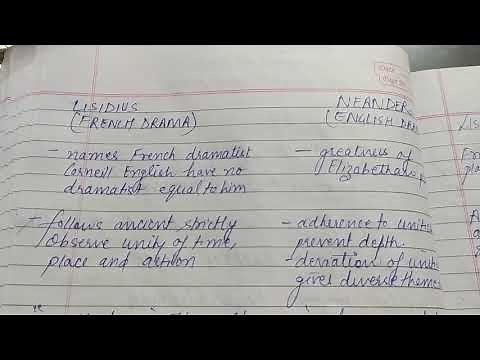 LISIDIUS
(FRENCH DRAMA)
- names French dramatist
Corneill English have no
dramatist equal to him
- follows ancient strictly
Observe unity of time,
place and action
NEANDER
(ENGLISH DRA
- greatness of
Elizabethans
- adherence to unities
prevent depth.
- deviation of unities
gives diverse themes